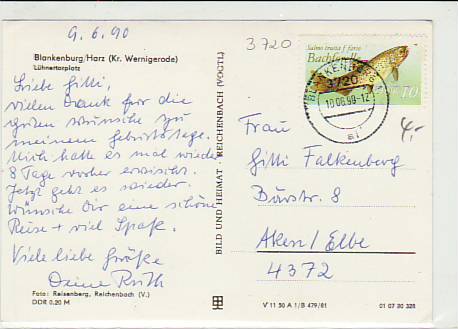 9.6.90
3720
Blankenburg/Harz (Kr. Wernigerode)
Lühnertorplatz
Liebe Gitti,
vielen Dank für die
guten Wünsche zu
meinem Geburtstage.
Mich hatte es mal wieder
8 Tage vorher erwischt.
Jetzt geht es wieder.
Wünsche Dir eine schöne
Reise + viel Spaß.
Viele liebe Grüße
Deine Ruth
Foto: Reisenberg, Reichenbach (V.)
DDR 0,20 M
BILD UND HEIMAT REICHENBACH (VOGTL)
V 11 50 A 1/B 479/81
01 07 20 328
Salmo trutta f. fario
Bachforelle
10
3720
4,-
Frau
Gitti Falkenberg
Bärstr. 8
Aken/Elbe
4372